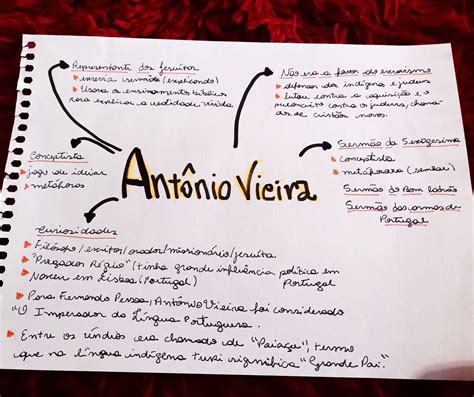 Representante dos jesuítas
escrevia sermão (explicando)
Usava os ensinamentos bíblicos
para explicar a realidade vivida
Não era a favor do escravismo
defensor dos indígenas e judeus
lutou contra a inquisição e o
preconceito contra os judeus, chama-
dos de cristãos novos.
Conceptista
jogo de ideias
metáforas
Antônio Vieira
Sermão da Sexagésima
conceptista
metáfora (semear)
Sermão do Bom ladrão
Sermão das armas de
Portugal
Curiosidades
Filósofo/escritor/orador/missionário/jesuíta
"Pregador Régio" (tinha grande influência política em
Portugal)
Nasceu em Lisboa (Portugal)
Para Fernando Pessoa, Antônio Vieira foi considerado
"O Imperador da Língua Portuguesa.
Entre os índios era chamado de "Paiaçu", termo
que na língua indígena tupi significa "Grande Pai".